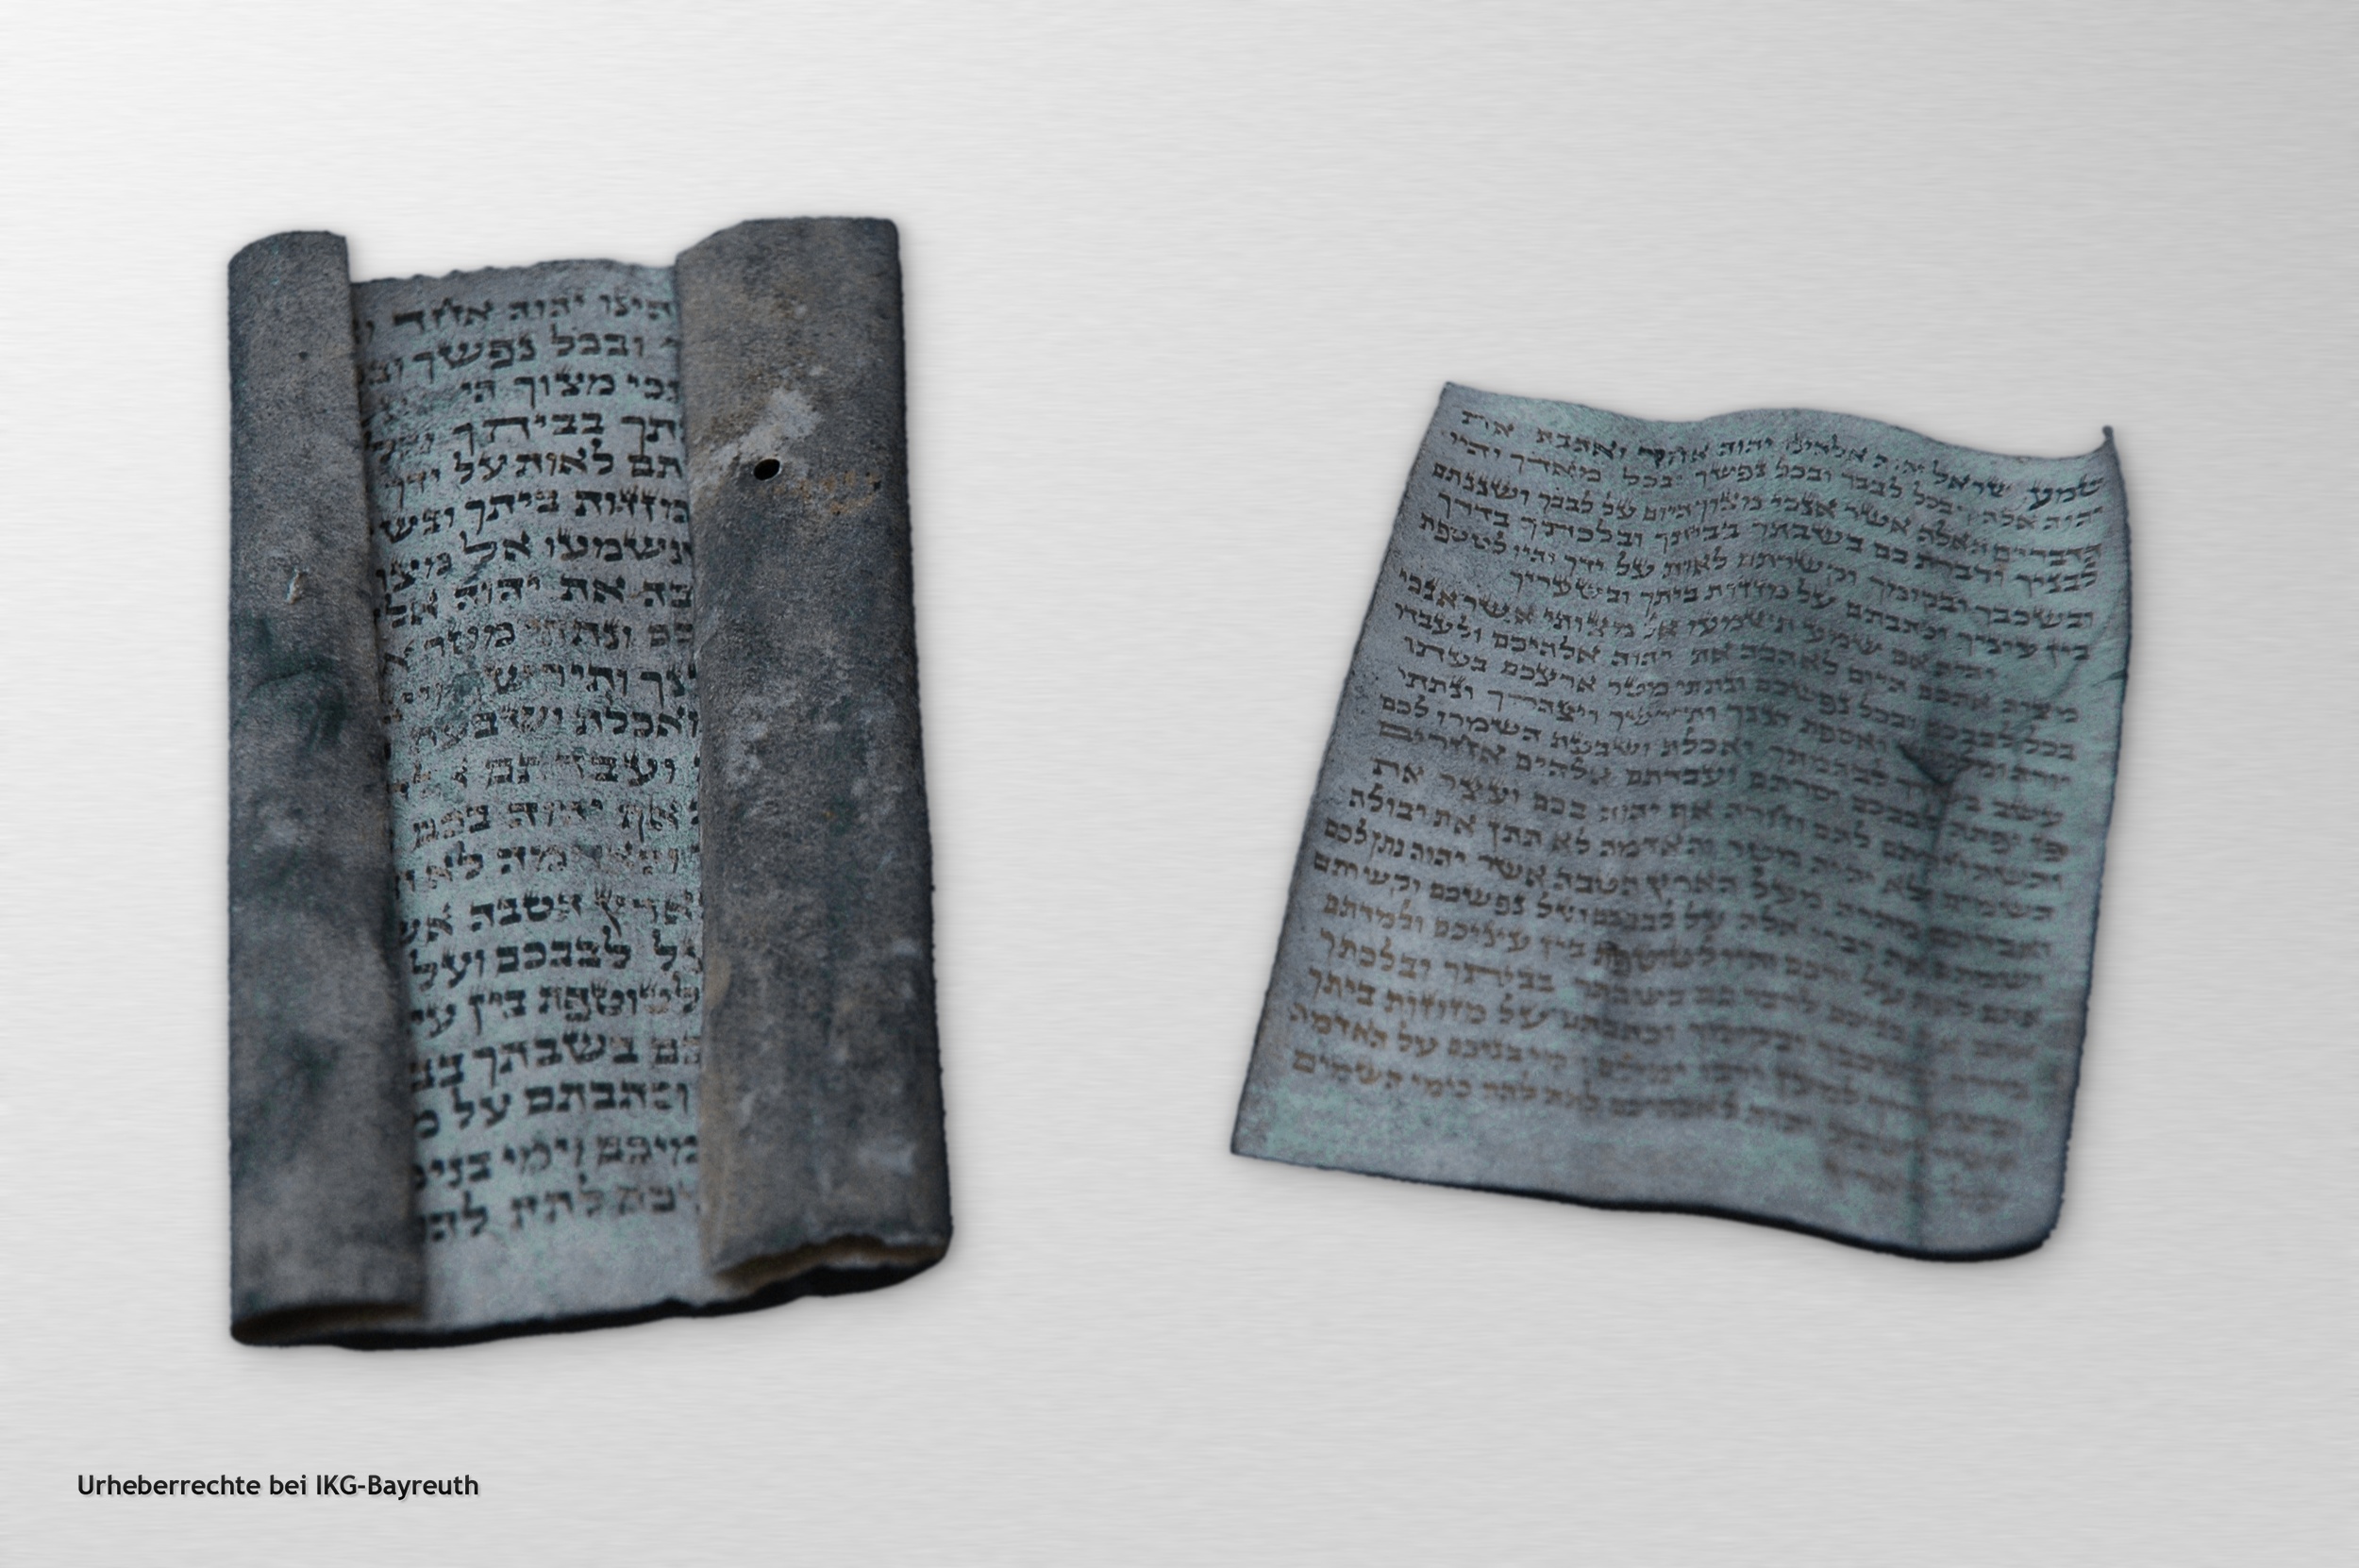 הינו יהוה אחד ו
ובכל נפשך ובכ
נכי מצוך הי
תך בביתך
תם לאות על ידך
מזזות ביתך ובש
תשמעו אל מצו
בה את יהוה אל
כם ונתתי מטר א
נך ותירשך
ואכלת ושבעת
ועבדתם
אף יהוה בכם
והאדמה לא
ארץ הטבה אש
על לבבכם ועל
לטוטפת בין עי
תם בשבתך בב
וכתבתם על מ
מיכם וימי בני
לתת להם
שמע ישראל יהוה אלהינו יהוה אחד ואהבת את
יהוה אלהיך בכל לבבך ובכל נפשך ובכל מאדך והיו
הדברים האלה אשר אנכי מצוך היום על לבבך ושננתם
לבניך ודברת בם בשבתך בביתך ובלכתך בדרך
ובשכבך ובקומך וקשרתם לאות על ידך והיו לטטפת
בין עיניך וכתבתם על מזזות ביתך ובשעריך
והיה אם שמע תשמעו אל מצותי אשר אנכי
מצוה אתכם היום לאהבה את יהוה אלהיכם ולעבדו
בכל לבבכם ובכל נפשכם ונתתי מטר ארצכם בעתו
יורה ואספת דגנך ותירשך ויצהרך ונתתי
עשב לבהמתך ואכלת ושבעת השמרו לכם
פן יפתה לבבכם וסרתם ועבדתם אלהים אחרים
להם וחרה אף יהוה בכם ועצר את
השמים ולא יהיה מטר והאדמה לא תתן את יבולה
ואבדתם מהרה מעל הארץ הטבה אשר יהוה נתן לכם
דברי אלה על לבבכם ועל נפשכם וקשרתם
על ידכם והיו לטוטפת בין עיניכם ולמדתם
בניכם לדבר בם בשבתך בביתך ובלכתך
ובקומך וכתבתם על מזוזות ביתך
למען ירבו ימיכם וימי בניכם על האדמה
יהוה לאבתיכם לתת להם כימי השמים
Urheberrechte bei IKG-Bayreuth